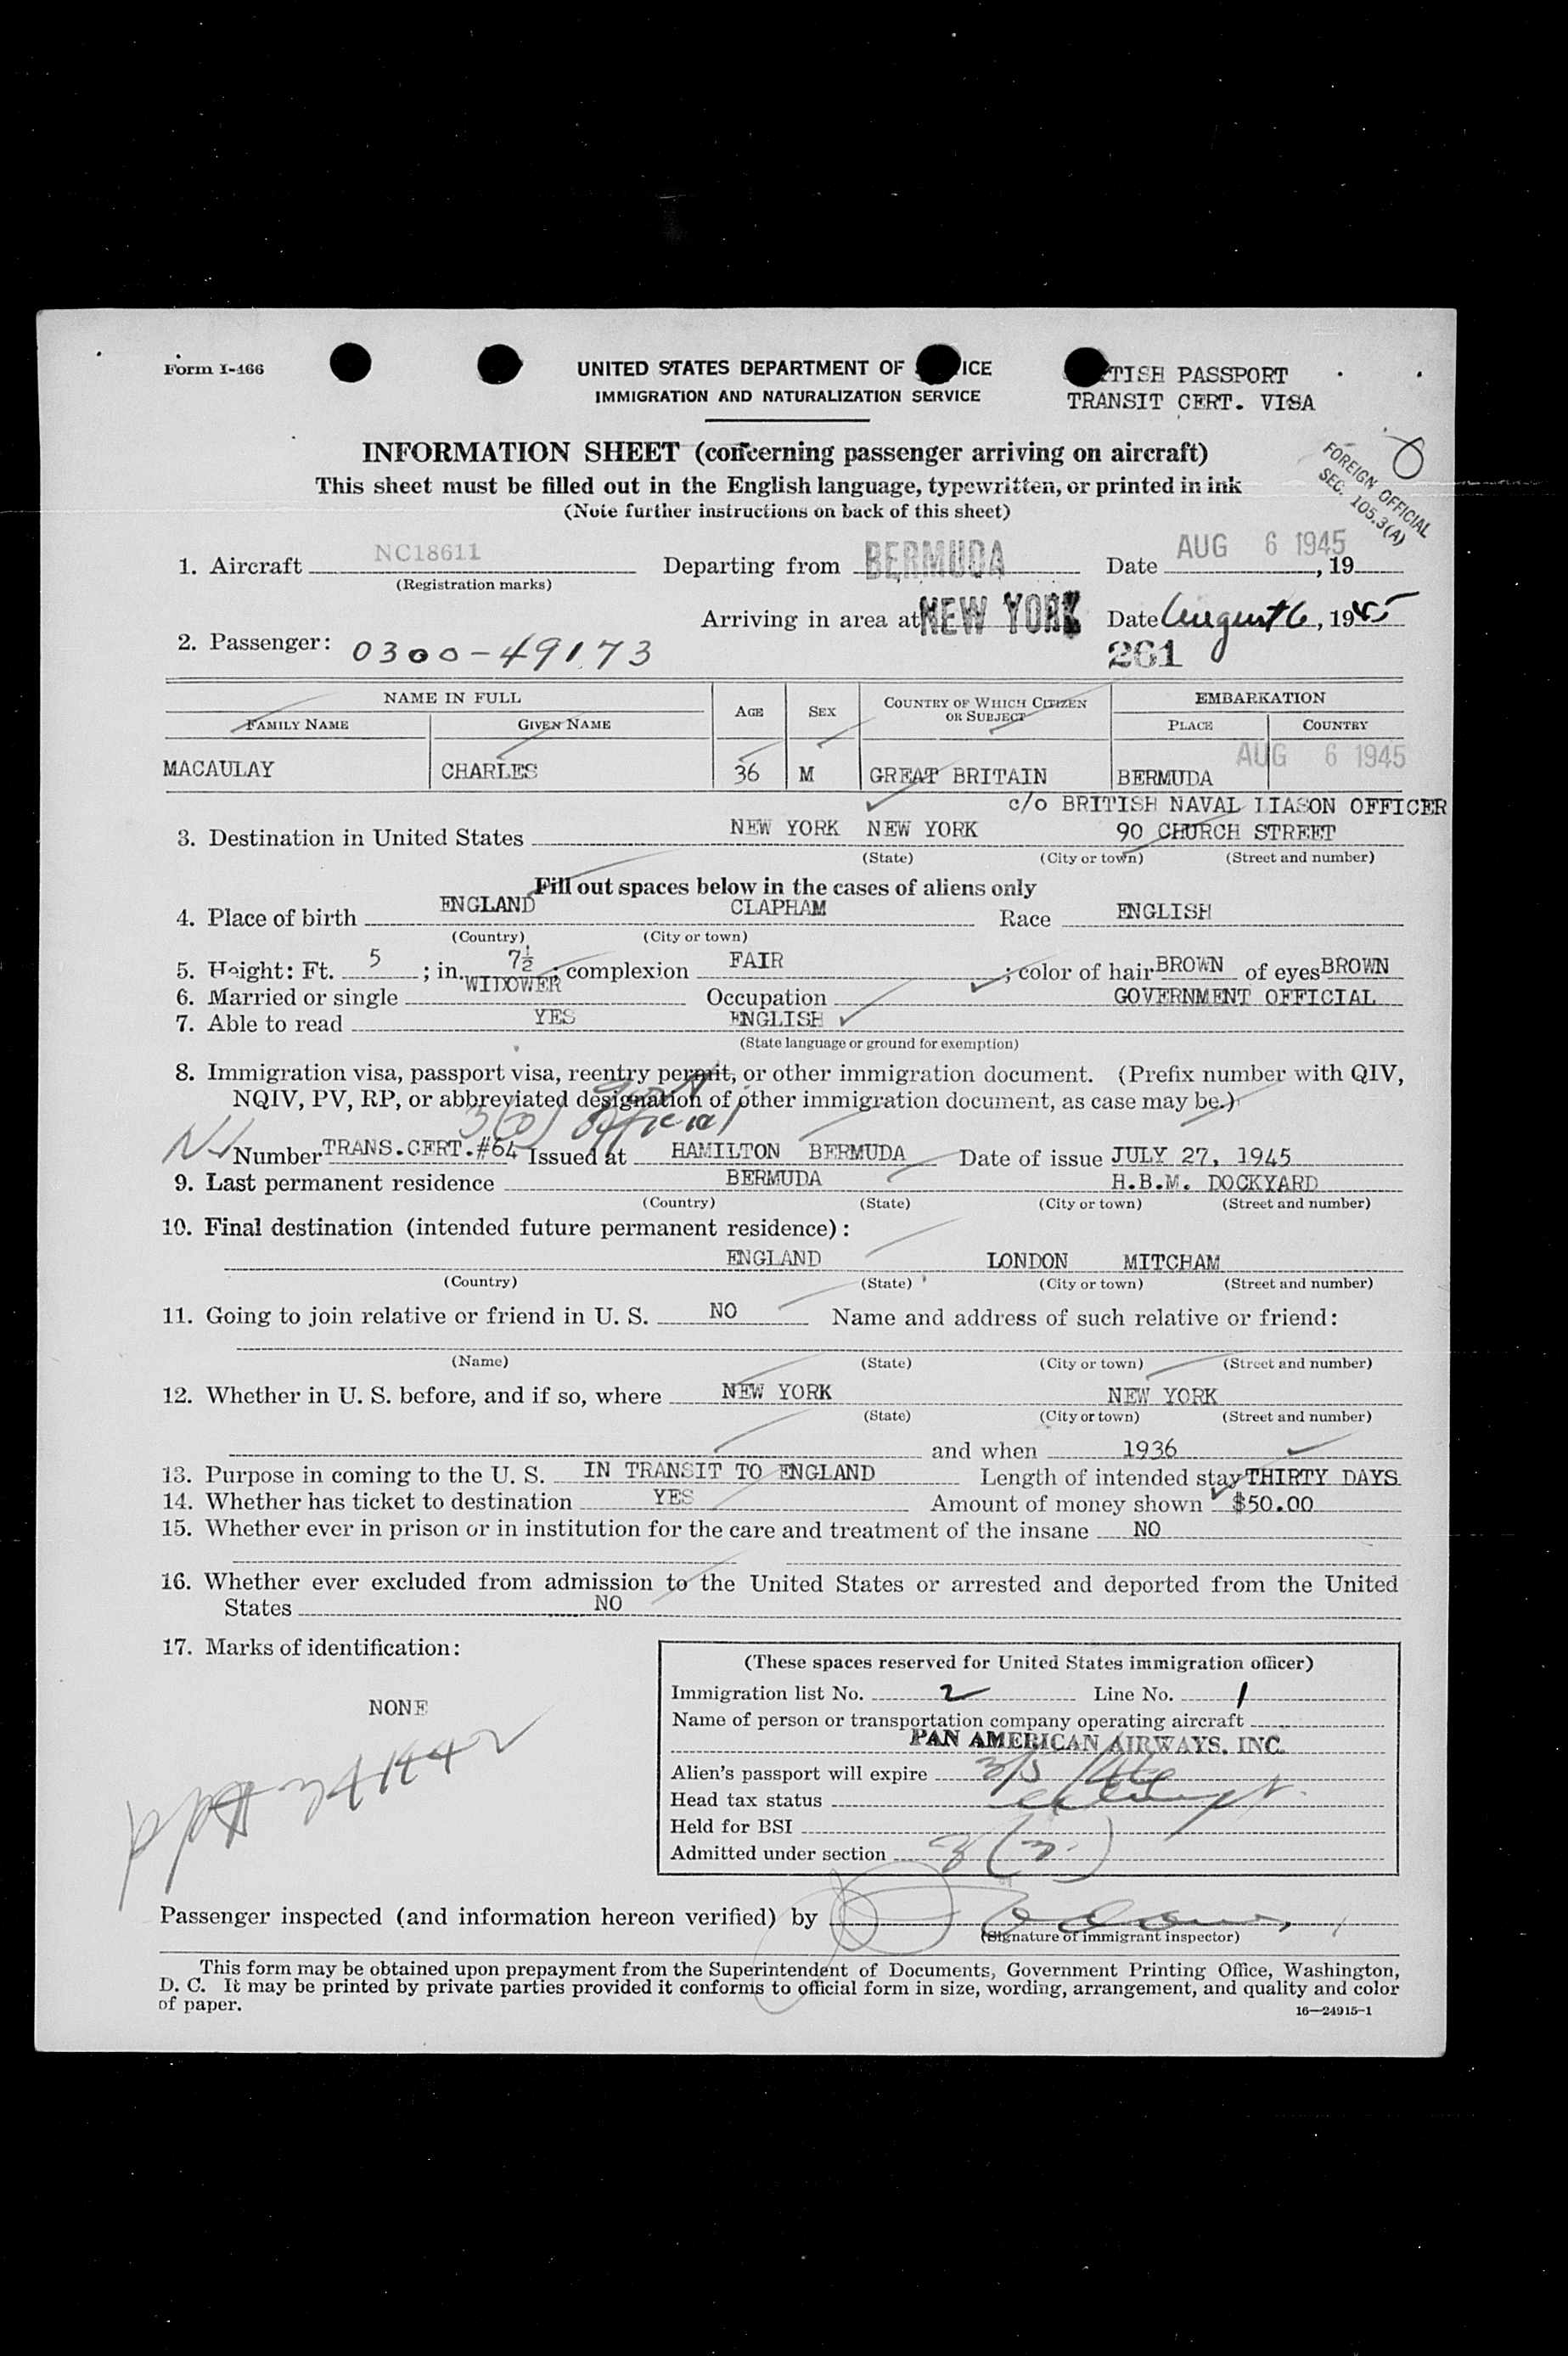 Form I-466
UNITED STATES DEPARTMENT OF ICE
IMMIGRATION AND NATURALIZATION SERVICE
TISH PASSPORT
TRANSIT CERT. VISA
INFORMATION SHEET (concerning passenger arriving on aircraft)
This sheet must be filled out in the English language, typewritten, or printed in ink
(Note further instructions on back of this sheet)
FOREIGN OFFICIAL
SEC. 105.3(A)
1. Aircraft NC18611 Departing from BERMUDA Date AUG 6 1945, 19
(Registration marks)
Arriving in area at NEW YORK Date August 6, 1945
2. Passenger: 0300-49173 261
NAME IN FULL AGE SEX COUNTRY OF WHICH CITIZEN OR SUBJECT EMBARKATION
FAMILY NAME GIVEN NAME PLACE COUNTRY
AUG 6 1945
MACAULAY CHARLES 36 M GREAT BRITAIN BERMUDA
c/o BRITISH NAVAL LIASON OFFICER
3. Destination in United States NEW YORK NEW YORK 90 CHURCH STREET
(State) (City or town) (Street and number)
Fill out spaces below in the cases of aliens only
4. Place of birth ENGLAND CLAPHAM Race ENGLISH
(Country) (City or town)
5. Height: Ft. 5 ; in. 7½ ; complexion FAIR ; color of hair BROWN of eyes BROWN
6. Married or single WIDOWER Occupation GOVERNMENT OFFICIAL
7. Able to read YES ENGLISH
(State language or ground for exemption)
8. Immigration visa, passport visa, reentry permit, or other immigration document. (Prefix number with QIV,
NQIV, PV, RP, or abbreviated designation of other immigration document, as case may be.)
official
Number TRANS.CERT.#64 Issued at HAMILTON BERMUDA Date of issue JULY 27, 1945
9. Last permanent residence BERMUDA H.B.M. DOCKYARD
(Country) (State) (City or town) (Street and number)
10. Final destination (intended future permanent residence):
ENGLAND LONDON MITCHAM
(Country) (State) (City or town) (Street and number)
11. Going to join relative or friend in U. S. NO Name and address of such relative or friend:
(Name) (State) (City or town) (Street and number)
12. Whether in U. S. before, and if so, where NEW YORK NEW YORK
(State) (City or town) (Street and number)
and when 1936
13. Purpose in coming to the U. S. IN TRANSIT TO ENGLAND Length of intended stay THIRTY DAYS
14. Whether has ticket to destination YES Amount of money shown $50.00
15. Whether ever in prison or in institution for the care and treatment of the insane NO
16. Whether ever excluded from admission to the United States or arrested and deported from the United
States NO
17. Marks of identification:
NONE
(These spaces reserved for United States immigration officer)
Immigration list No. 2 Line No. 1
Name of person or transportation company operating aircraft
PAN AMERICAN AIRWAYS, INC.
Alien's passport will expire
Head tax status
Held for BSI
Admitted under section 3 (2)
Passenger inspected (and information hereon verified) by
(Signature of immigrant inspector)
This form may be obtained upon prepayment from the Superintendent of Documents, Government Printing Office, Washington,
D. C. It may be printed by private parties provided it conforms to official form in size, wording, arrangement, and quality and color
of paper.
16—24915-1